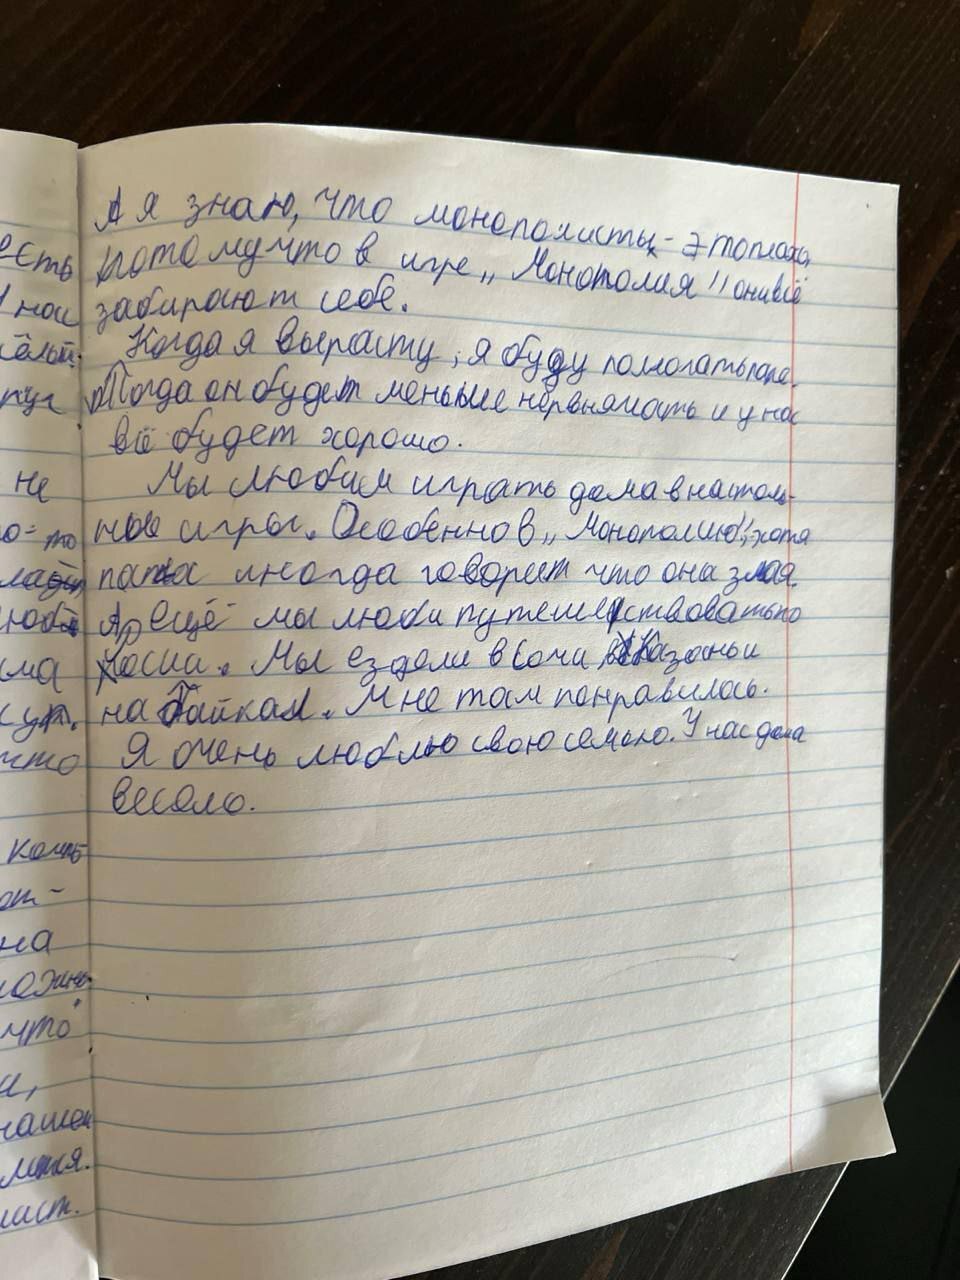 есть
нас
не
о-то
ма
сут.
что
комп
от-
на
что
и,
нашем
ласт.
А я знаю, что монополисты - это плохо,
потому что в игре „Монополия" они всё
забирают себе.
Когда я вырасту, я буду помогать папе.
Тогда он будет меньше нервничать и у нас
всё будет хорошо.
Мы любим играть дома в настоль-
ные игры. Особенно в „Монополию", хотя
папа иногда говорит что она злая.
А ещё мы люби путешествовать по
Росии. Мы ездели в Сочи в Казань и
на Байкал. Мне там понравилось.
Я очень люблю свою семью. У нас дома
весело.